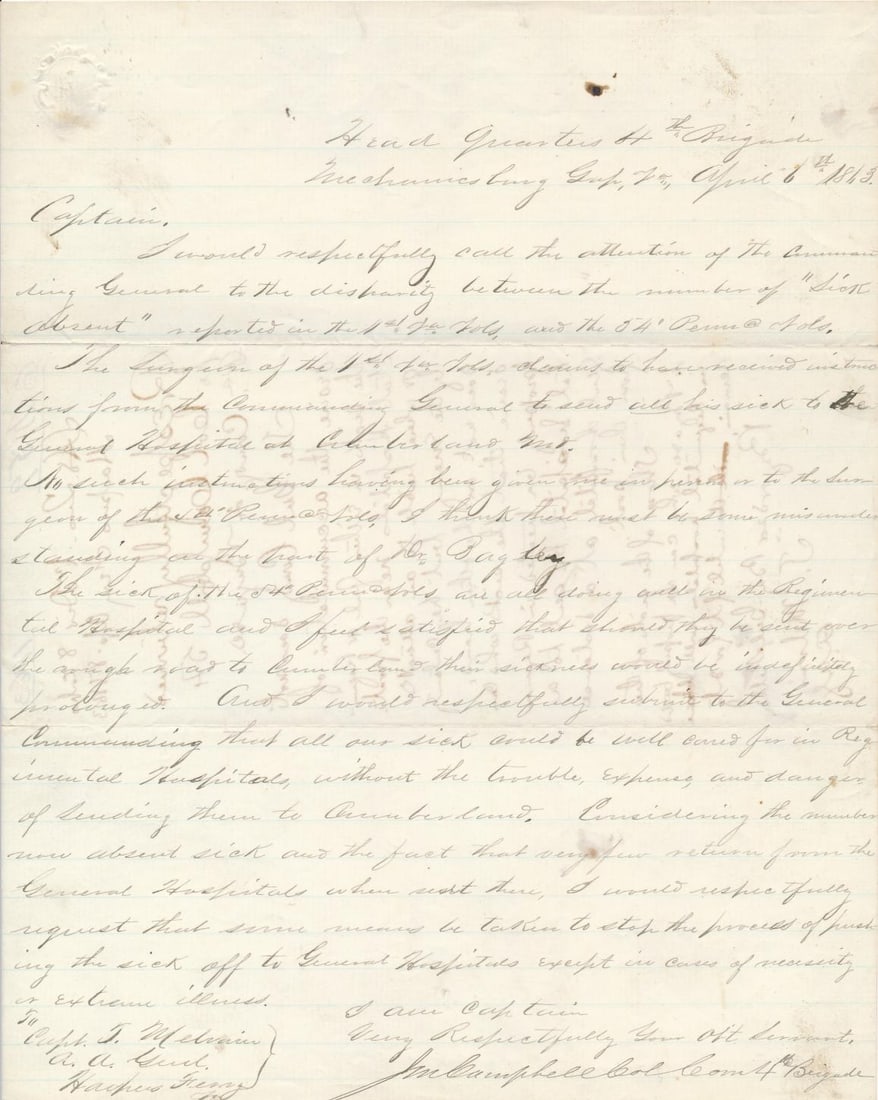 Head Quarters 4th Brigade
Mechanicsburg Gap, Va, April 6th 1863.
Captain.
I would respectfully call the attention of the Comman
ding General to the disparity between the number of "Sick
absent" reported in the 1st Va Vols, and the 54' Penna Vols.
The Surgeon of the 1st Va Vols. claims to have received instruc
tions from the Commanding General to send all his sick to the
General Hospital at Cumberland Md.
No such instructions having been given me in person or to the Sur-
geon of the 54' Penna Vols, I think there must be some misunder
standing on the part of Dr. Bagley
The sick of the 54 Penna Vols are all doing well in the Regimen-
tal Hospital and I feel satisfied that should they be sent over
the rough road to Cumberland their sickness would be indefinitely
prolonged. And I would respectfully submit to the General
Commanding that all our sick could be well cared for in Reg
imental Hospitals, without the trouble, expense, and danger,
of sending them to Cumberland. Considering the number
now absent sick and the fact that very few return from the
General Hospitals when sent there, I would respectfully
request that some means be taken to stop the process of push
ing the sick off to General Hospitals except in cases of necessity
or extreme illness.
I am Captain
Very Respectfully Your Obt Servant.
JM Campbell Col Com 4th Brigade
To
Capt. T. Melvin
A. A. Genl.
Harpers Ferry